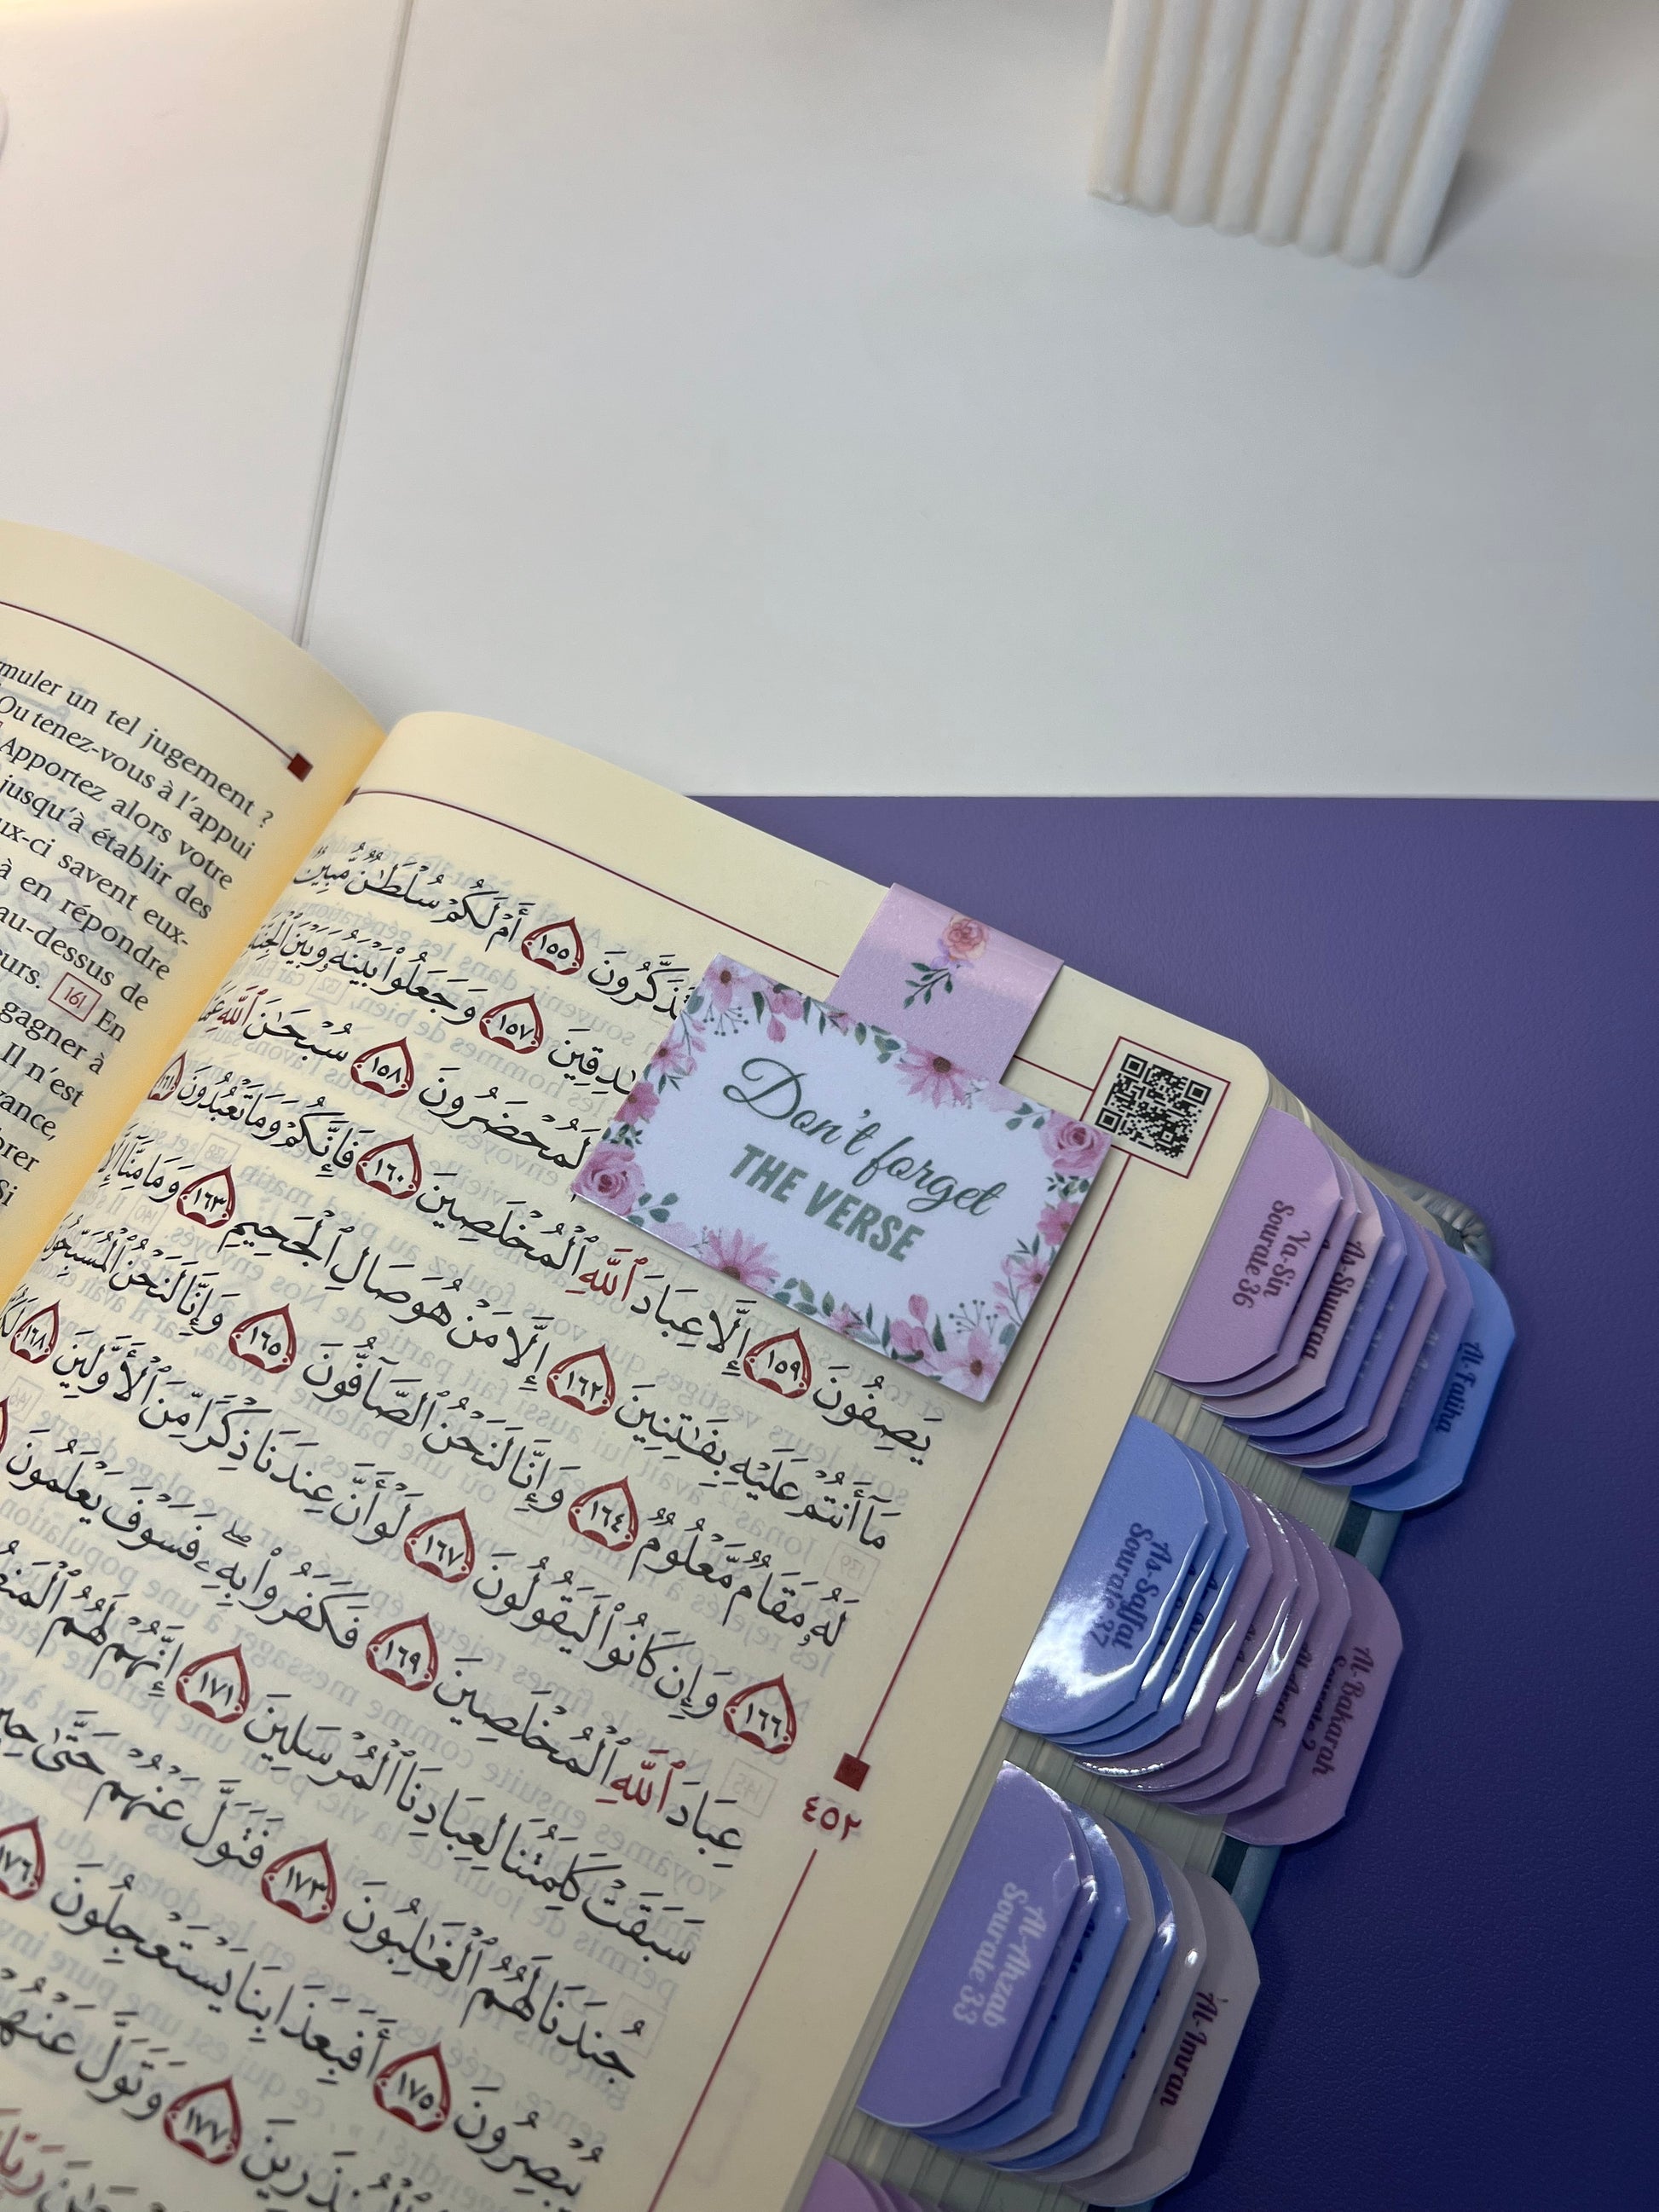 muler un tel jugement ?
Ou tenez-vous à l'appui
Apportez alors votre
jusqu'à établir des
ux-ci savent eux-
à en répondre
au-dessus de
urs. 161 En
gagner à
Il n'est
Si
تَذَكَّرُونَ ١٥٥ أَمْ لَكُمْ سُلْطَٰنٌ مُّبِينٌ
وَجَعَلُوا۟ بَيْنَهُۥ وَبَيْنَ ٱلْجِنَّةِ ١٥٧ صَٰدِقِينَ
لَمُحْضَرُونَ ١٥٨ سُبْحَٰنَ ٱللَّهِ عَمَّا
يَصِفُونَ ١٥٩ إِلَّا عِبَادَ ٱللَّهِ ٱلْمُخْلَصِينَ ١٦٠ فَإِنَّكُمْ وَمَا تَعْبُدُونَ ١٦١
مَآ أَنتُمْ عَلَيْهِ بِفَٰتِنِينَ ١٦٢ إِلَّا مَنْ هُوَ صَالِ ٱلْجَحِيمِ ١٦٣ وَمَا مِنَّآ إِلَّا
لَهُۥ مَقَامٌ مَّعْلُومٌ ١٦٤ وَإِنَّا لَنَحْنُ ٱلصَّآفُّونَ ١٦٥ وَإِنَّا لَنَحْنُ ٱلْمُسَبِّحُونَ
١٦٦ وَإِن كَانُوا۟ لَيَقُولُونَ ١٦٧ لَوْ أَنَّ عِندَنَا ذِكْرًا مِّنَ ٱلْأَوَّلِينَ ١٦٨ لَكُنَّا
عِبَادَ ٱللَّهِ ٱلْمُخْلَصِينَ ١٦٩ فَكَفَرُوا۟ بِهِۦ ۖ فَسَوْفَ يَعْلَمُونَ
سَبَقَتْ كَلِمَتُنَا لِعِبَادِنَا ٱلْمُرْسَلِينَ ١٧١ إِنَّهُمْ لَهُمُ ٱلْمَنصُورُونَ
جُندَنَا لَهُمُ ٱلْغَٰلِبُونَ ١٧٣ فَتَوَلَّ عَنْهُمْ حَتَّىٰ حِينٍ
يُبْصِرُونَ ١٧٥ أَفَبِعَذَابِنَا يَسْتَعْجِلُونَ ١٧٦
ٱلْمُنذَرِينَ ١٧٧ وَتَوَلَّ عَنْهُمْ
٤٥٢
Don't forget
THE VERSE
Ya-Sin
Sourate 36
Ash-Shuaraa
Al-Fatiha
As-Saffat
Sourate 37
Al-Araf
Al-Bakarah
Sourate 2
Al-Ahzab
Sourate 33
Al-Imran